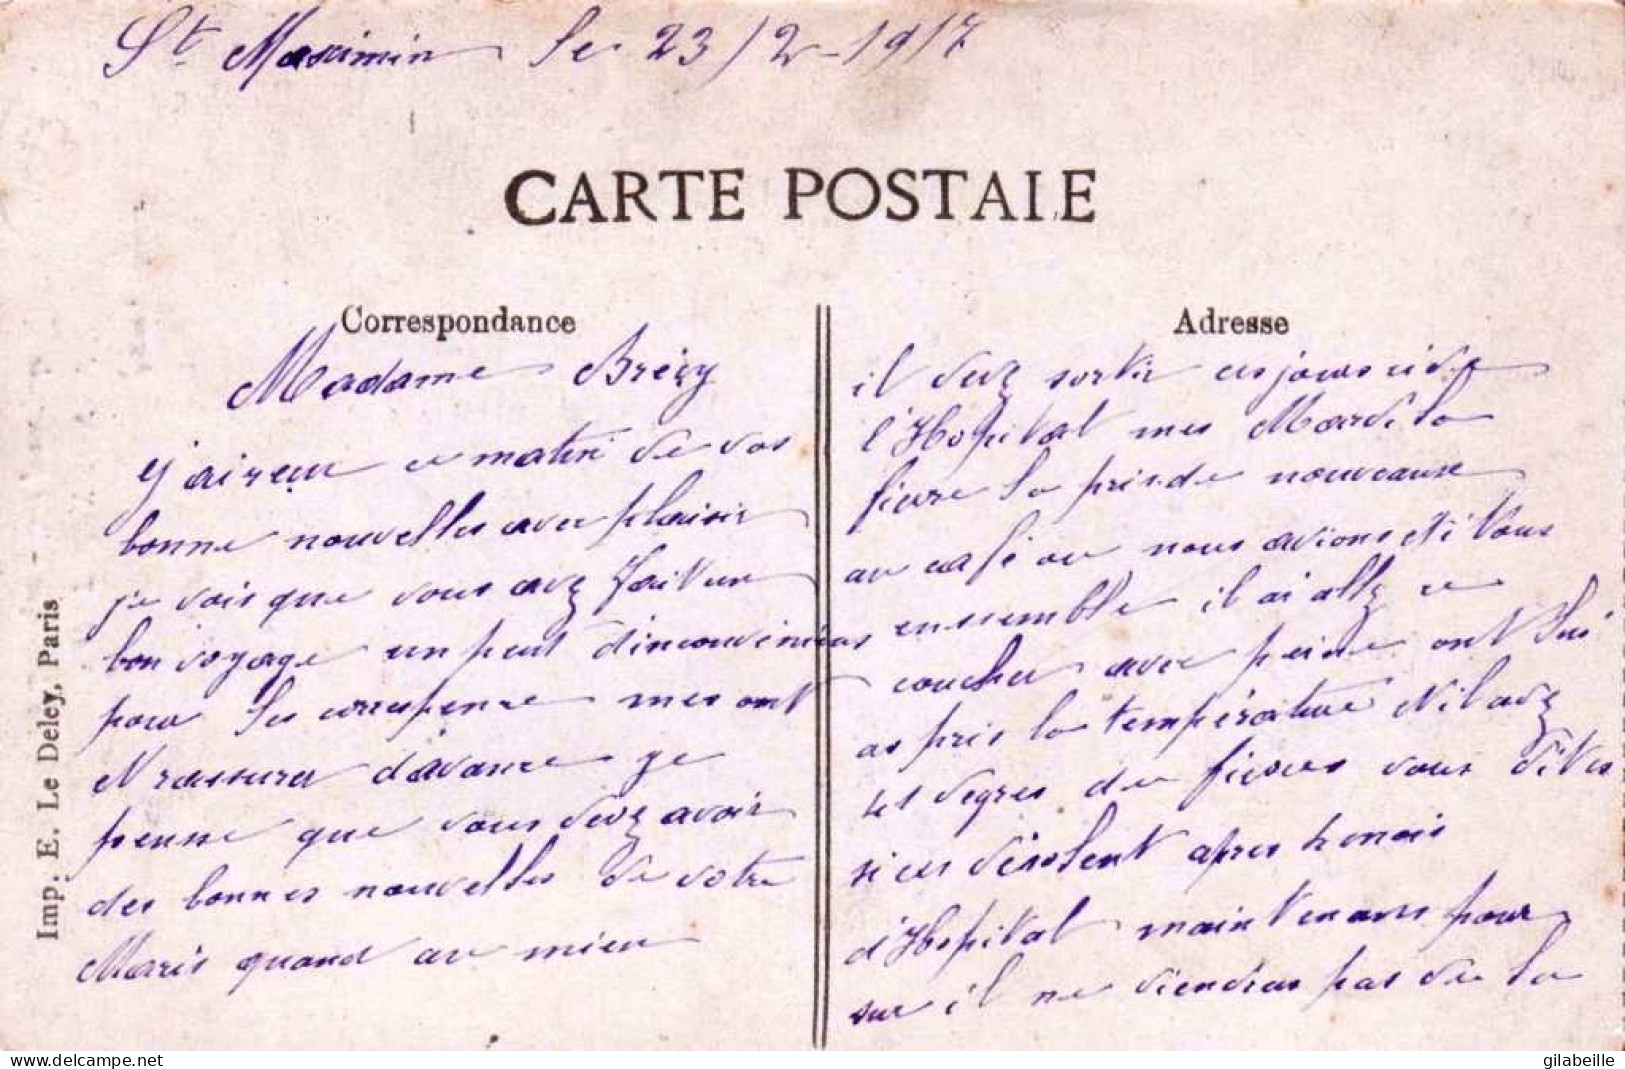 St Maximin le 23/2-1917
CARTE POSTALE
Correspondance
Madame Brézy
j'ai reçu ce matin de vos
bonne nouvelles avec plaisir
je vois que vous avez fait un
bon voyage un peut d'inconvéniens
pour les correspence mes ont
et rassurer d'avance ge
pensse que vous devez avoir
des bonnes nouvelles de votre
Maris quand au mien
Adresse
il devez sortir ces jours ci de
l'Hopital mes Mardi la
fievre la pris de nouveause
au café ou nous avions été tous
ensemble il ai allez ce
coucher avec peine ont lui
as pris la température et il avez
degres de fievres vous dites
si ces désolent apres mois
d'Hopital maintenans pour
sur il ne viendras pas de la
Imp. E. Le Deley, Paris
delcampe.net
gilabeille